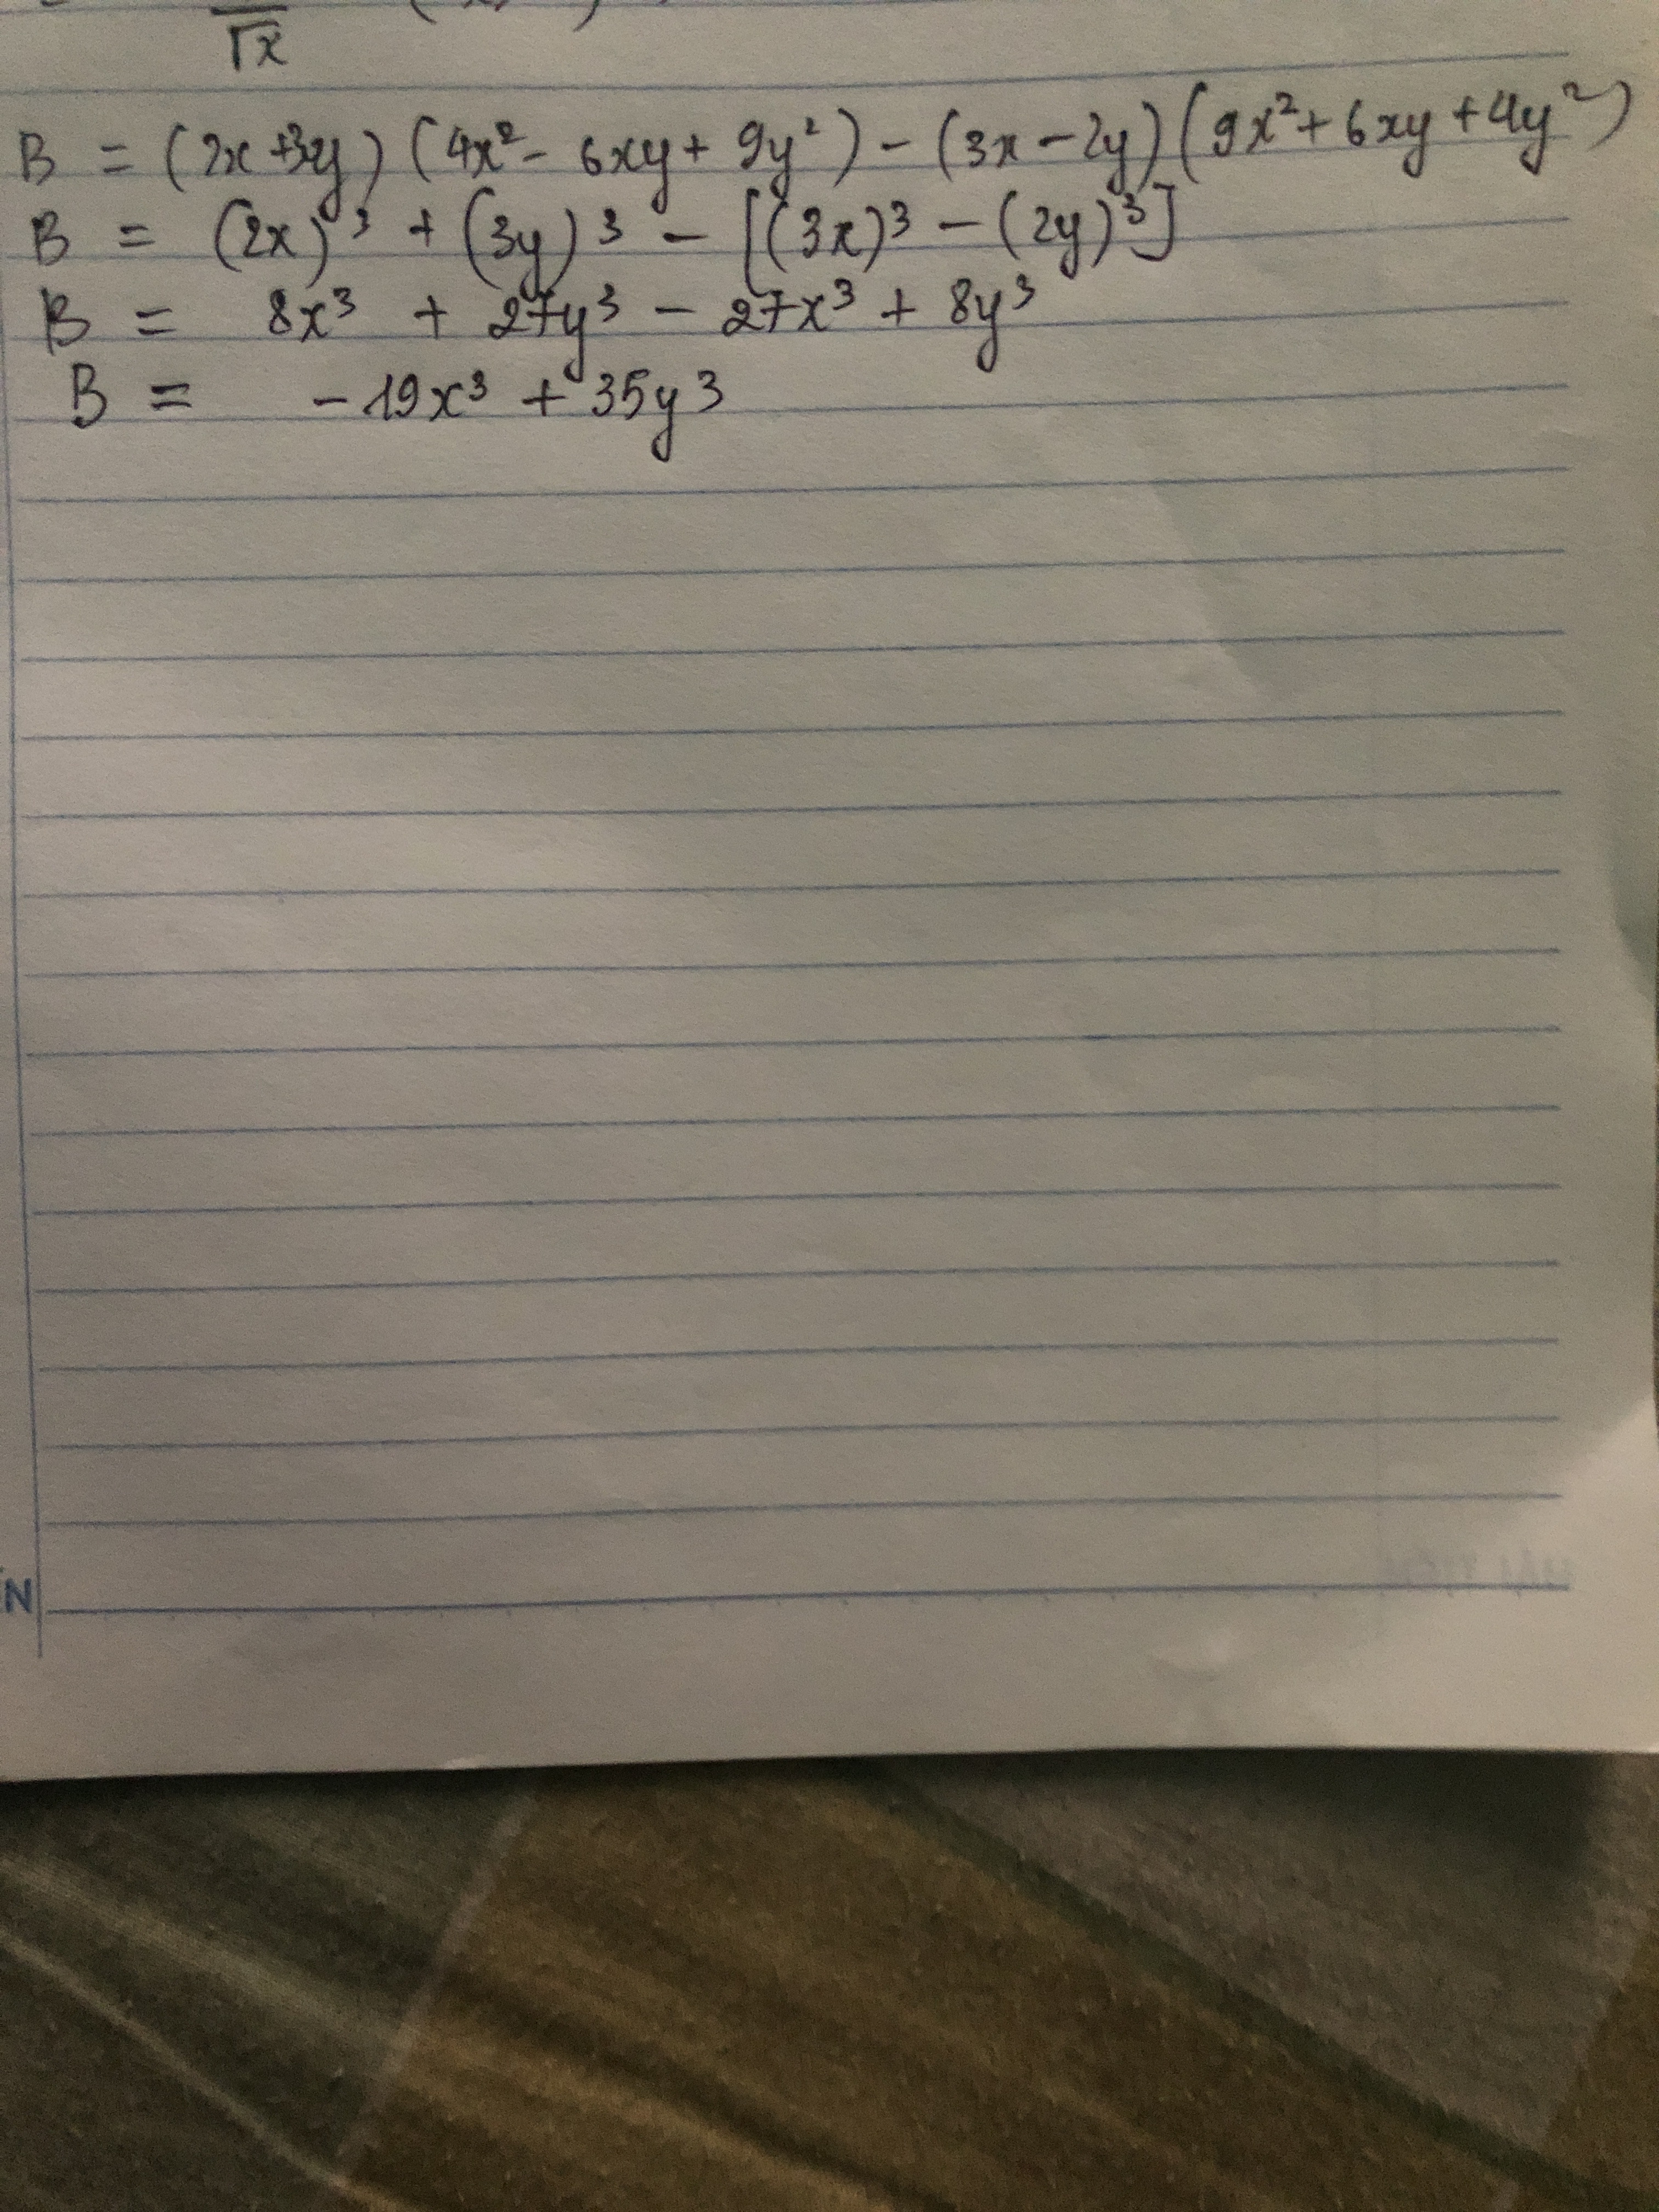 √x
B = (2x+3y)(4x² - 6xy + 9y²) - (3x - 2y)(9x² + 6xy + 4y²)
B = (2x)³ + (3y)³ - [(3x)³ - (2y)³]
B = 8x³ + 27y³ - 27x³ + 8y³
B = - 19x³ + 35y³
N